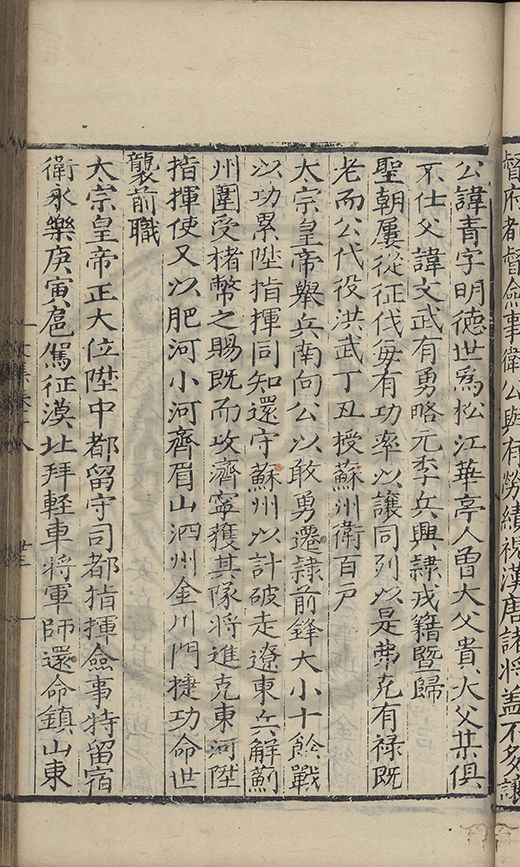 督府都督僉事衛公與有勞績視漢唐諸將盖不多讓
公諱青字明德世爲松江華亭人曾大父貴大父某俱
不仕父諱文武有勇略元季兵興隷戎籍暨歸
聖朝屢從征伐每有功率以讓同列以是弗克有禄既
老而公代役洪武丁丑授蘇州衛百户
太宗皇帝舉兵南向公以敢勇遷隷前鋒大小十餘戰
以功累陞指揮同知還守蘇州以計破走遼東兵解薊
州圍受楮幣之賜既而攻濟寧獲其隊將進克東河陞
指揮使又以肥河小河齊眉山泗州金川門捷功命世
襲前職
太宗皇帝正大位陞中都留守司都指揮僉事特留宿
衛永樂庚寅扈駕征漠北拜輕車將軍師還命鎮山東